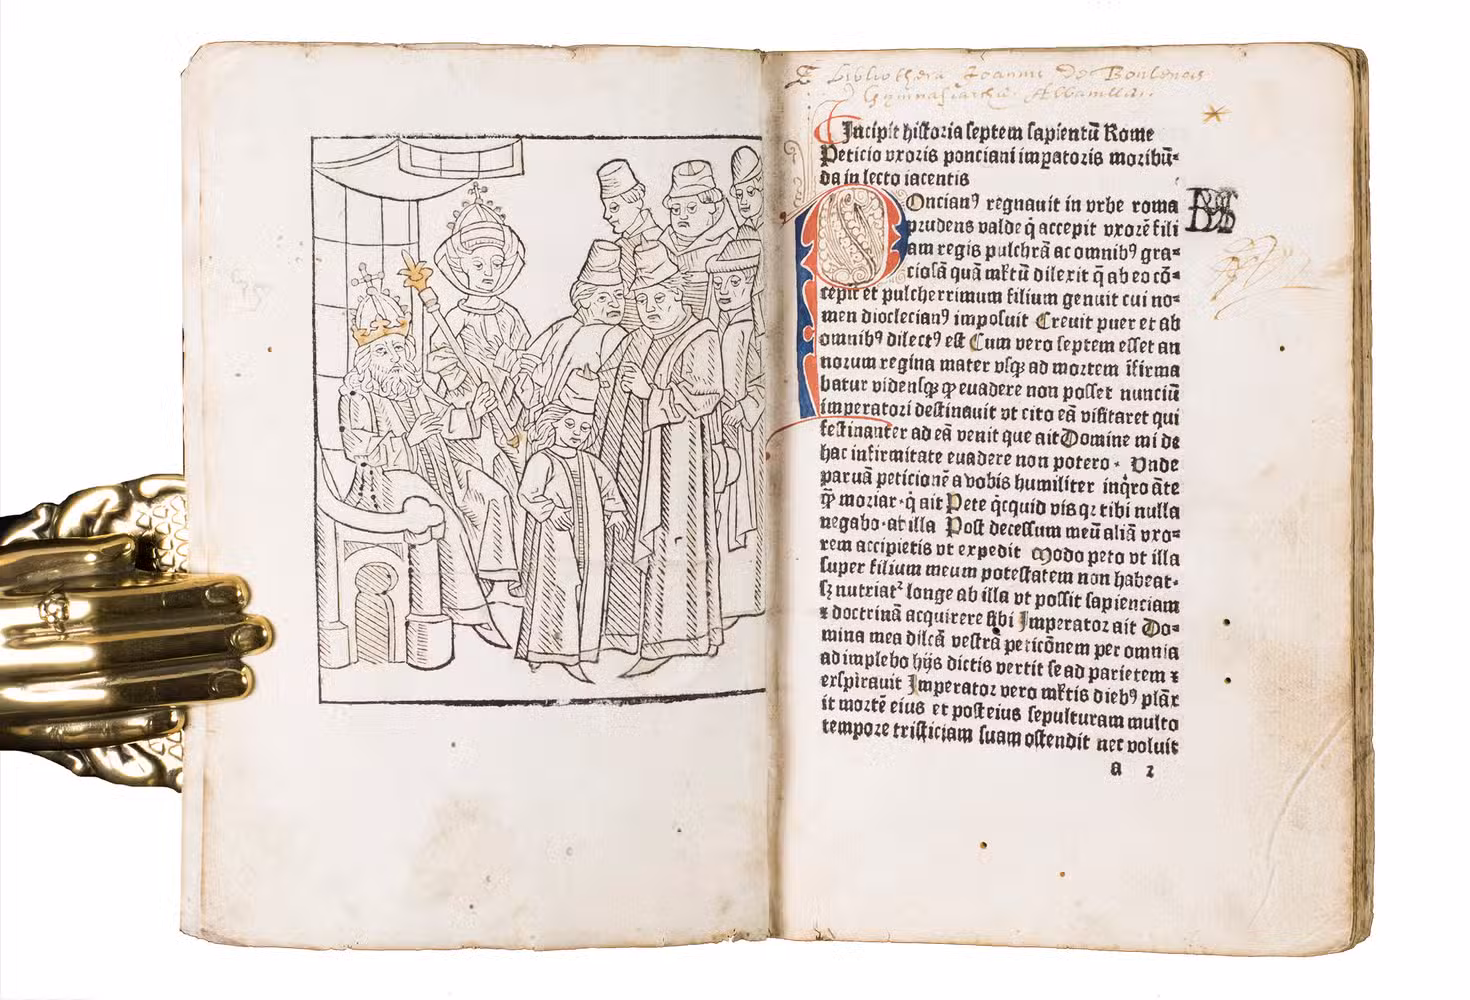 Ex Bibliotheca Joannis De Boulenois
Gymnasiarchæ
Incipit hiſtoria ſeptem ſapientū Rome
Peticio vxoris ponciani imꝑatoris moribū⸗
da in lecto iacentis
POncianꝰ regnauit in vrbe roma
prudens valde q̇ accepit vxorē fili
am regis pulchrā ac omnibꝰ gra⸗
cioſā quā mr̄tū dilexit q̄ ab eo cō⸗
cepit et pulcherrimum filium genuit cui no⸗
men dioclecianꝰ impoſuit Creuit puer et ab
omnibꝰ dilectꝰ eſt Cum vero ſeptem eſſet an
norum regina mater vſqꝫ ad mortem īfirma
batur vidensqꝫ ꝙ euadere non poſſet nunciū
imperatori deſtinauit vt cito eā viſitaret qui
feſtinanter ad eā venit que ait Domine mi de
hac infirmitate euadere non potero · Vnde
paruā peticionē a vobis humiliter inq̇ro āte
ꝙ̄ moriar · q̇ ait Pete q̇cquid vis qꝛ tibi nulla
negabo · at illa Poſt deceſſum meū aliā vxo⸗
rem accipietis vt expedit Modo peto vt illa
ſuper filium meum poteſtatem non habeat ·
ſꝫ nutriatꝛ longe ab illa vt poſſit ſapienciam
⁊ doctrinā acquirere ſibi Imperator ait Do⸗
mina mea dilcā veſtrā peticōnem per omnia
adimplebo hijs dictis vertit ſe ad parietem ⁊
exſpirauit Imperator vero mr̄tis diebꝰ plāx
it mortē eius et poſt eius ſepulturam multo
tempore triſticiam ſuam oſtendit nec voluit
a 2